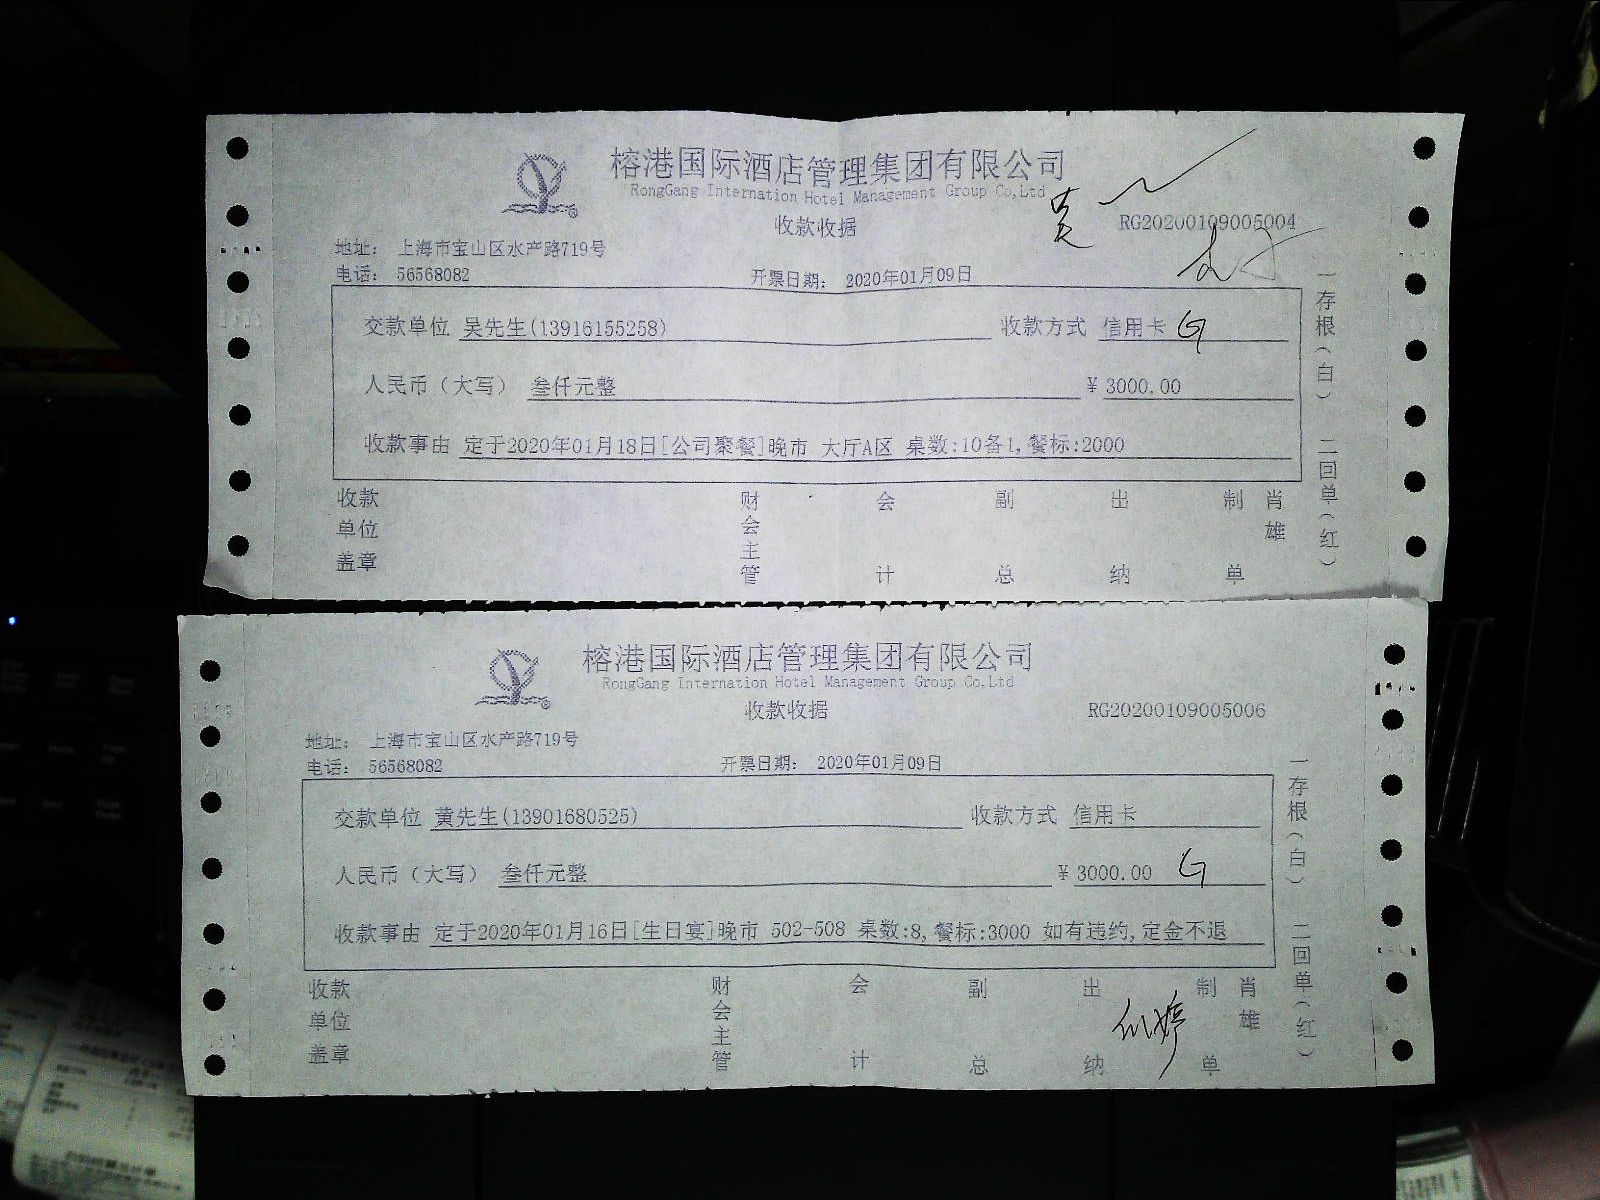 榕港国际酒店管理集团有限公司
RongGang Internation Hotel Management Group Co,Ltd
收款收据
RG20200109005004
地址： 上海市宝山区水产路719号
电话： 56568082 开票日期： 2020年01月09日
交款单位 吴先生(13916155258) 收款方式 信用卡 G
人民币（大写） 叁仟元整 ¥ 3000.00
收款事由 定于2020年01月18日[公司聚餐]晚市 大厅A区 桌数:10备1,餐标:2000
收款单位盖章 财会主管 会计 副总 出纳 制单 肖雄
一存根（白） 二回单（红）
榕港国际酒店管理集团有限公司
RongGang Internation Hotel Management Group Co,Ltd
收款收据
RG20200109005006
地址： 上海市宝山区水产路719号
电话： 56568082 开票日期： 2020年01月09日
交款单位 黄先生(13901680525) 收款方式 信用卡
人民币（大写） 叁仟元整 ¥ 3000.00 G
收款事由 定于2020年01月16日[生日宴]晚市 502-508 桌数:8,餐标:3000 如有违约,定金不退
收款单位盖章 财会主管 会计 副总 出纳 制单 肖雄
一存根（白） 二回单（红）